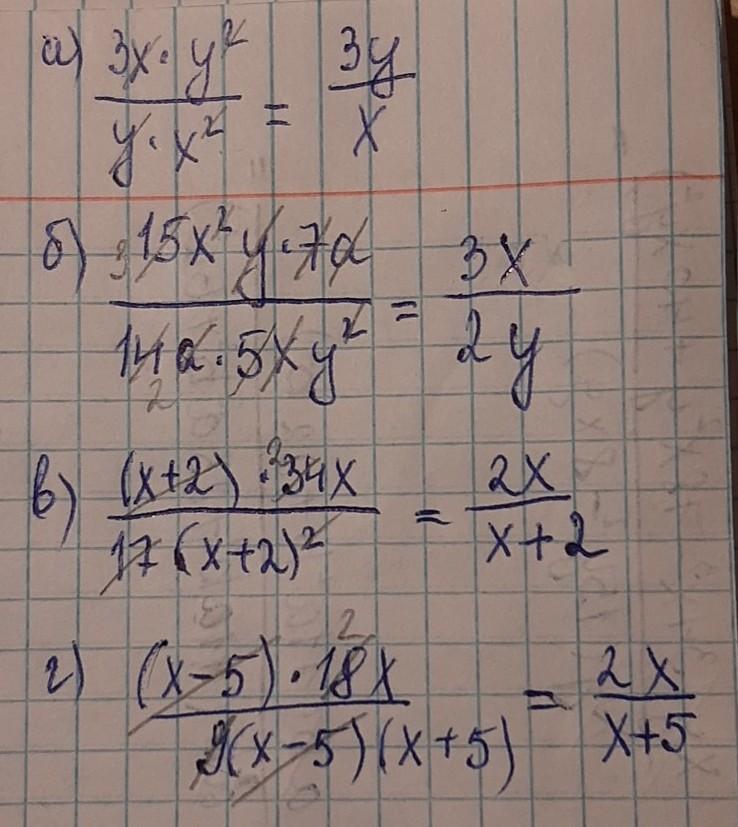 а) 3x · y² / y · x² = 3y / x
б) 3 15x²y · 7a / 14a · 5xy² 2 = 3x / 2y
в) (x+2) · ²34x / 17(x+2)² = 2x / x+2
г) (x-5) · 18x 2 / 9(x-5)(x+5) = 2x / x+5